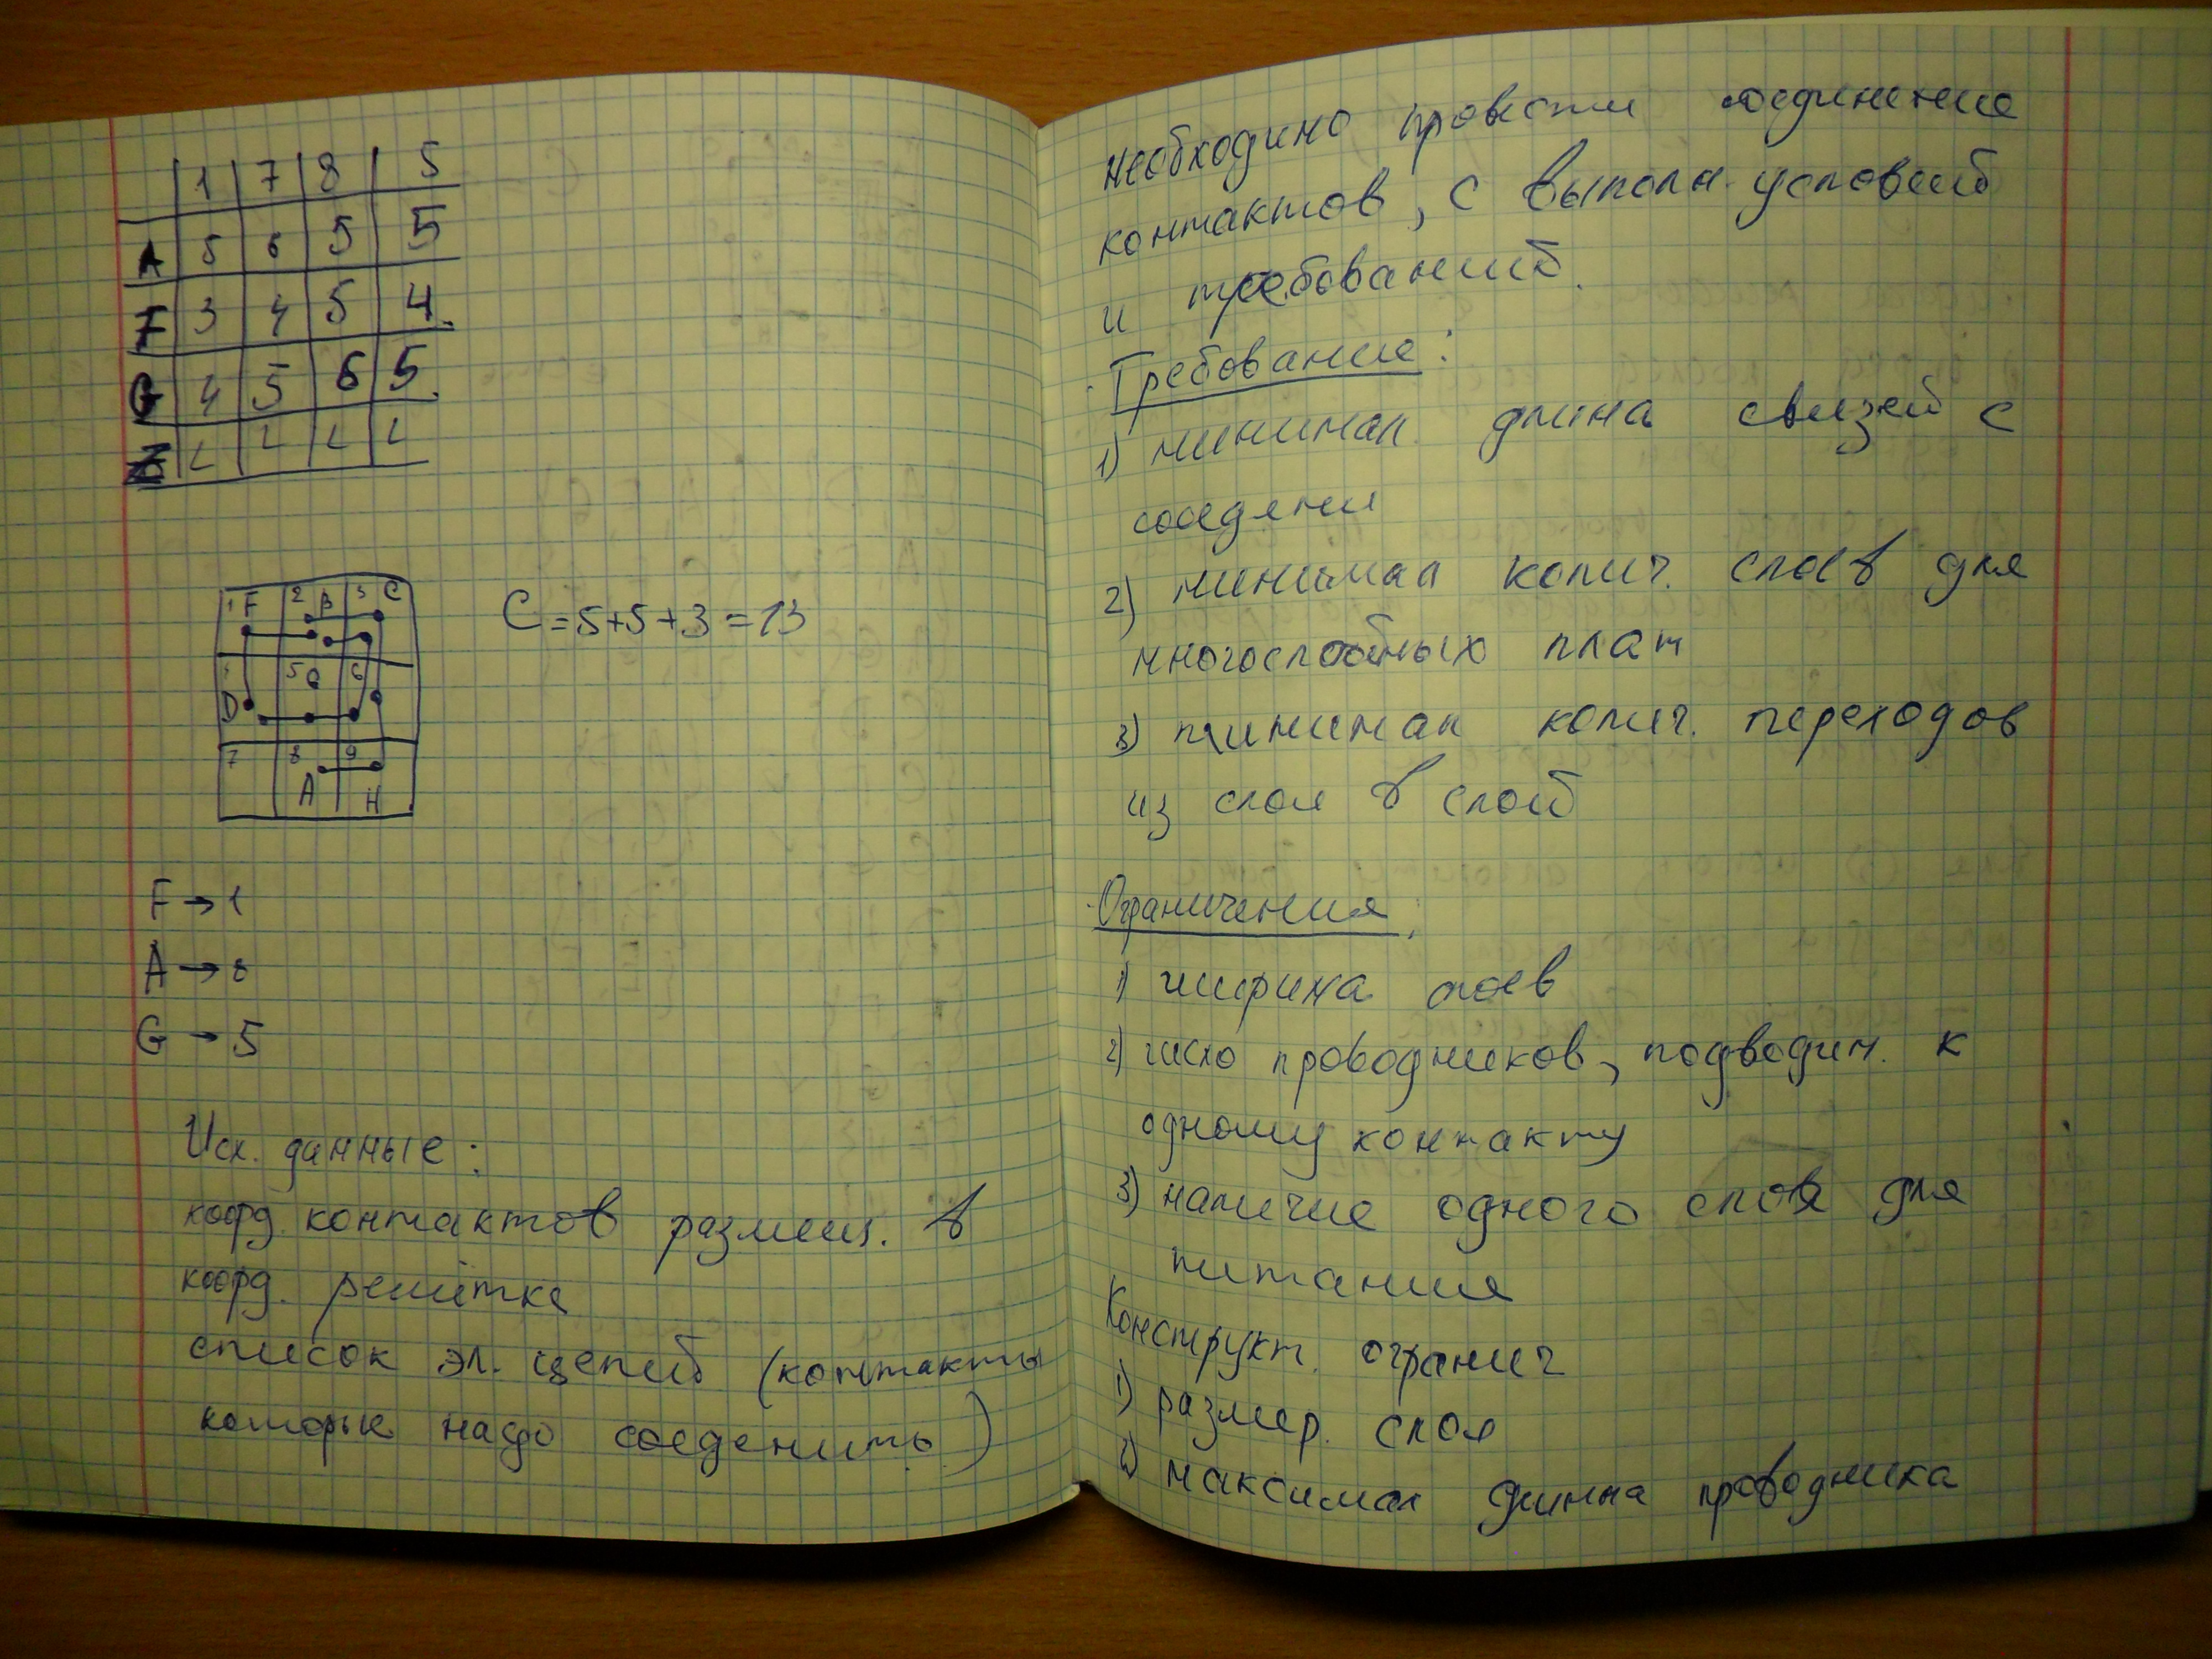 1 7 8 5
A 5 6 5 5
F 3 4 5 4
G 4 5 6 5
Z L L L L
1 F 2 B 3 C
5 G 6
D
7 8 9
A H
C = 5+5+3 = 13
F → 1
A → 8
G → 5
Исх. данные:
коорд. контактов размещ. в
коорд. решётке
список эл. цепей (контакты
которые надо соеденить)
необходимо провести соединение
контактов, с выполн. условий
и требований.
Требование:
1) минимал. длина связей с
2) минимал колич. слоев для
многослойных плат
3) минимал колич. переходов
из слоя в слой
Ограничения:
1) ширина слоев
2) число проводников, подводим. к
одному контакту
3) наличие одного слоя для
питания
Конструкт. огранич
1) размер. слоя
2) максимал длинна проводника